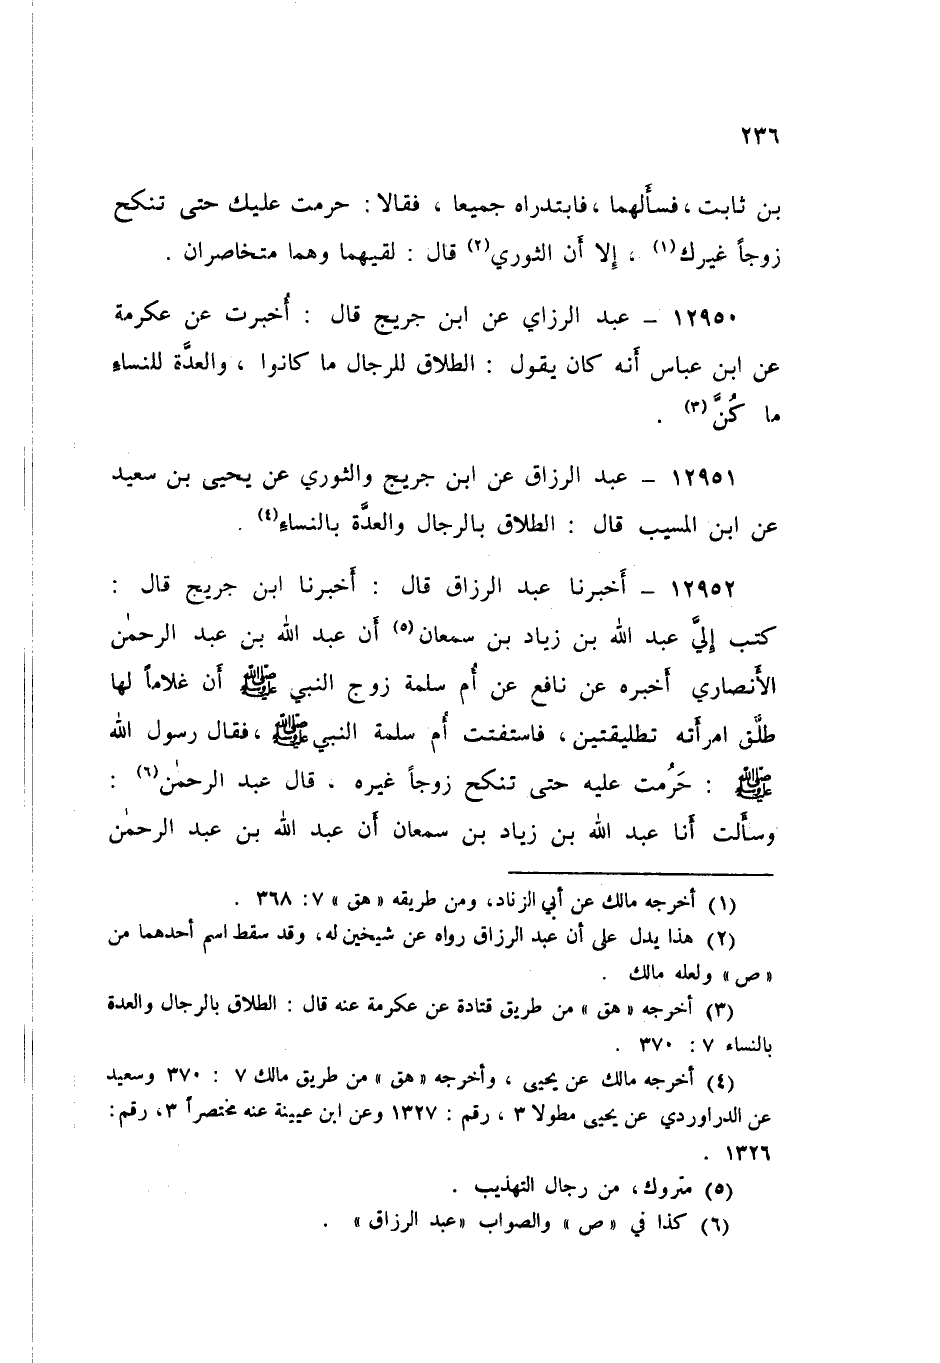 ٢٣٦
بن ثابت ، فسأَلهما ، فابتدراه جميعا ، فقالا : حرمت عليك حتى تنكح
زوجاً غيرك(١) ، إلا أَن الثوري(٢) قال : لقيهما وهما متخاصران .
١٢٩٥٠ – عبد الرزاي عن ابن جريج قال : أُخبرت عن عكرمة
عن ابن عباس أَنه كان يقول : الطلاق للرجال ما كانوا ، والعدَّة للنساءِ
ما كُنَّ(٣) .
١٢٩٥١ – عبد الرزاق عن ابن جريج والثوري عن يحيى بن سعيد
عن ابن المسيب قال : الطلاق بالرجال والعدَّة بالنساءِ(٤) .
١٢٩٥٢ – أَخبرنا عبد الرزاق قال : أَخبرنا ابن جريج قال :
كتب إِليَّ عبد الله بن زياد بن سمعان(٥) أَن عبد الله بن عبد الرحمٰن
الأَنصاري أَخبره عن نافع عن أُم سلمة زوج النبي ﷺ أَن غلاماً لها
طلَّق امرأَته تطليقتين ، فاستفتت أُم سلمة النبي ﷺ ، فقال رسول الله
ﷺ : حَرُمت عليه حتى تنكح زوجاً غيره . قال عبد الرحمٰن(٦) :
وسأَلت أَنا عبد الله بن زياد بن سمعان أَن عبد الله بن عبد الرحمٰن
(١) أخرجه مالك عن أبي الزناد، ومن طريقه « هق » ٧: ٣٦٨ .
(٢) هذا يدل على أن عبد الرزاق رواه عن شيخين له، وقد سقط اسم أحدهما من
« ص » ولعله مالك .
(٣) أخرجه « هق » من طريق قتادة عن عكرمة عنه قال : الطلاق بالرجال والعدة
بالنساء ٧ : ٣٧٠ .
(٤) أخرجه مالك عن يحيى ، وأخرجه « هق » من طريق مالك ٧ : ٣٧٠ وسعيد
عن الدراوردي عن يحيى مطولا ٣ ، رقم : ١٣٢٧ وعن ابن عيينة عنه مختصراً ٣، رقم :
١٣٢٦ .
(٥) متروك، من رجال التهذيب .
(٦) كذا في « ص » والصواب «عبد الرزاق » .